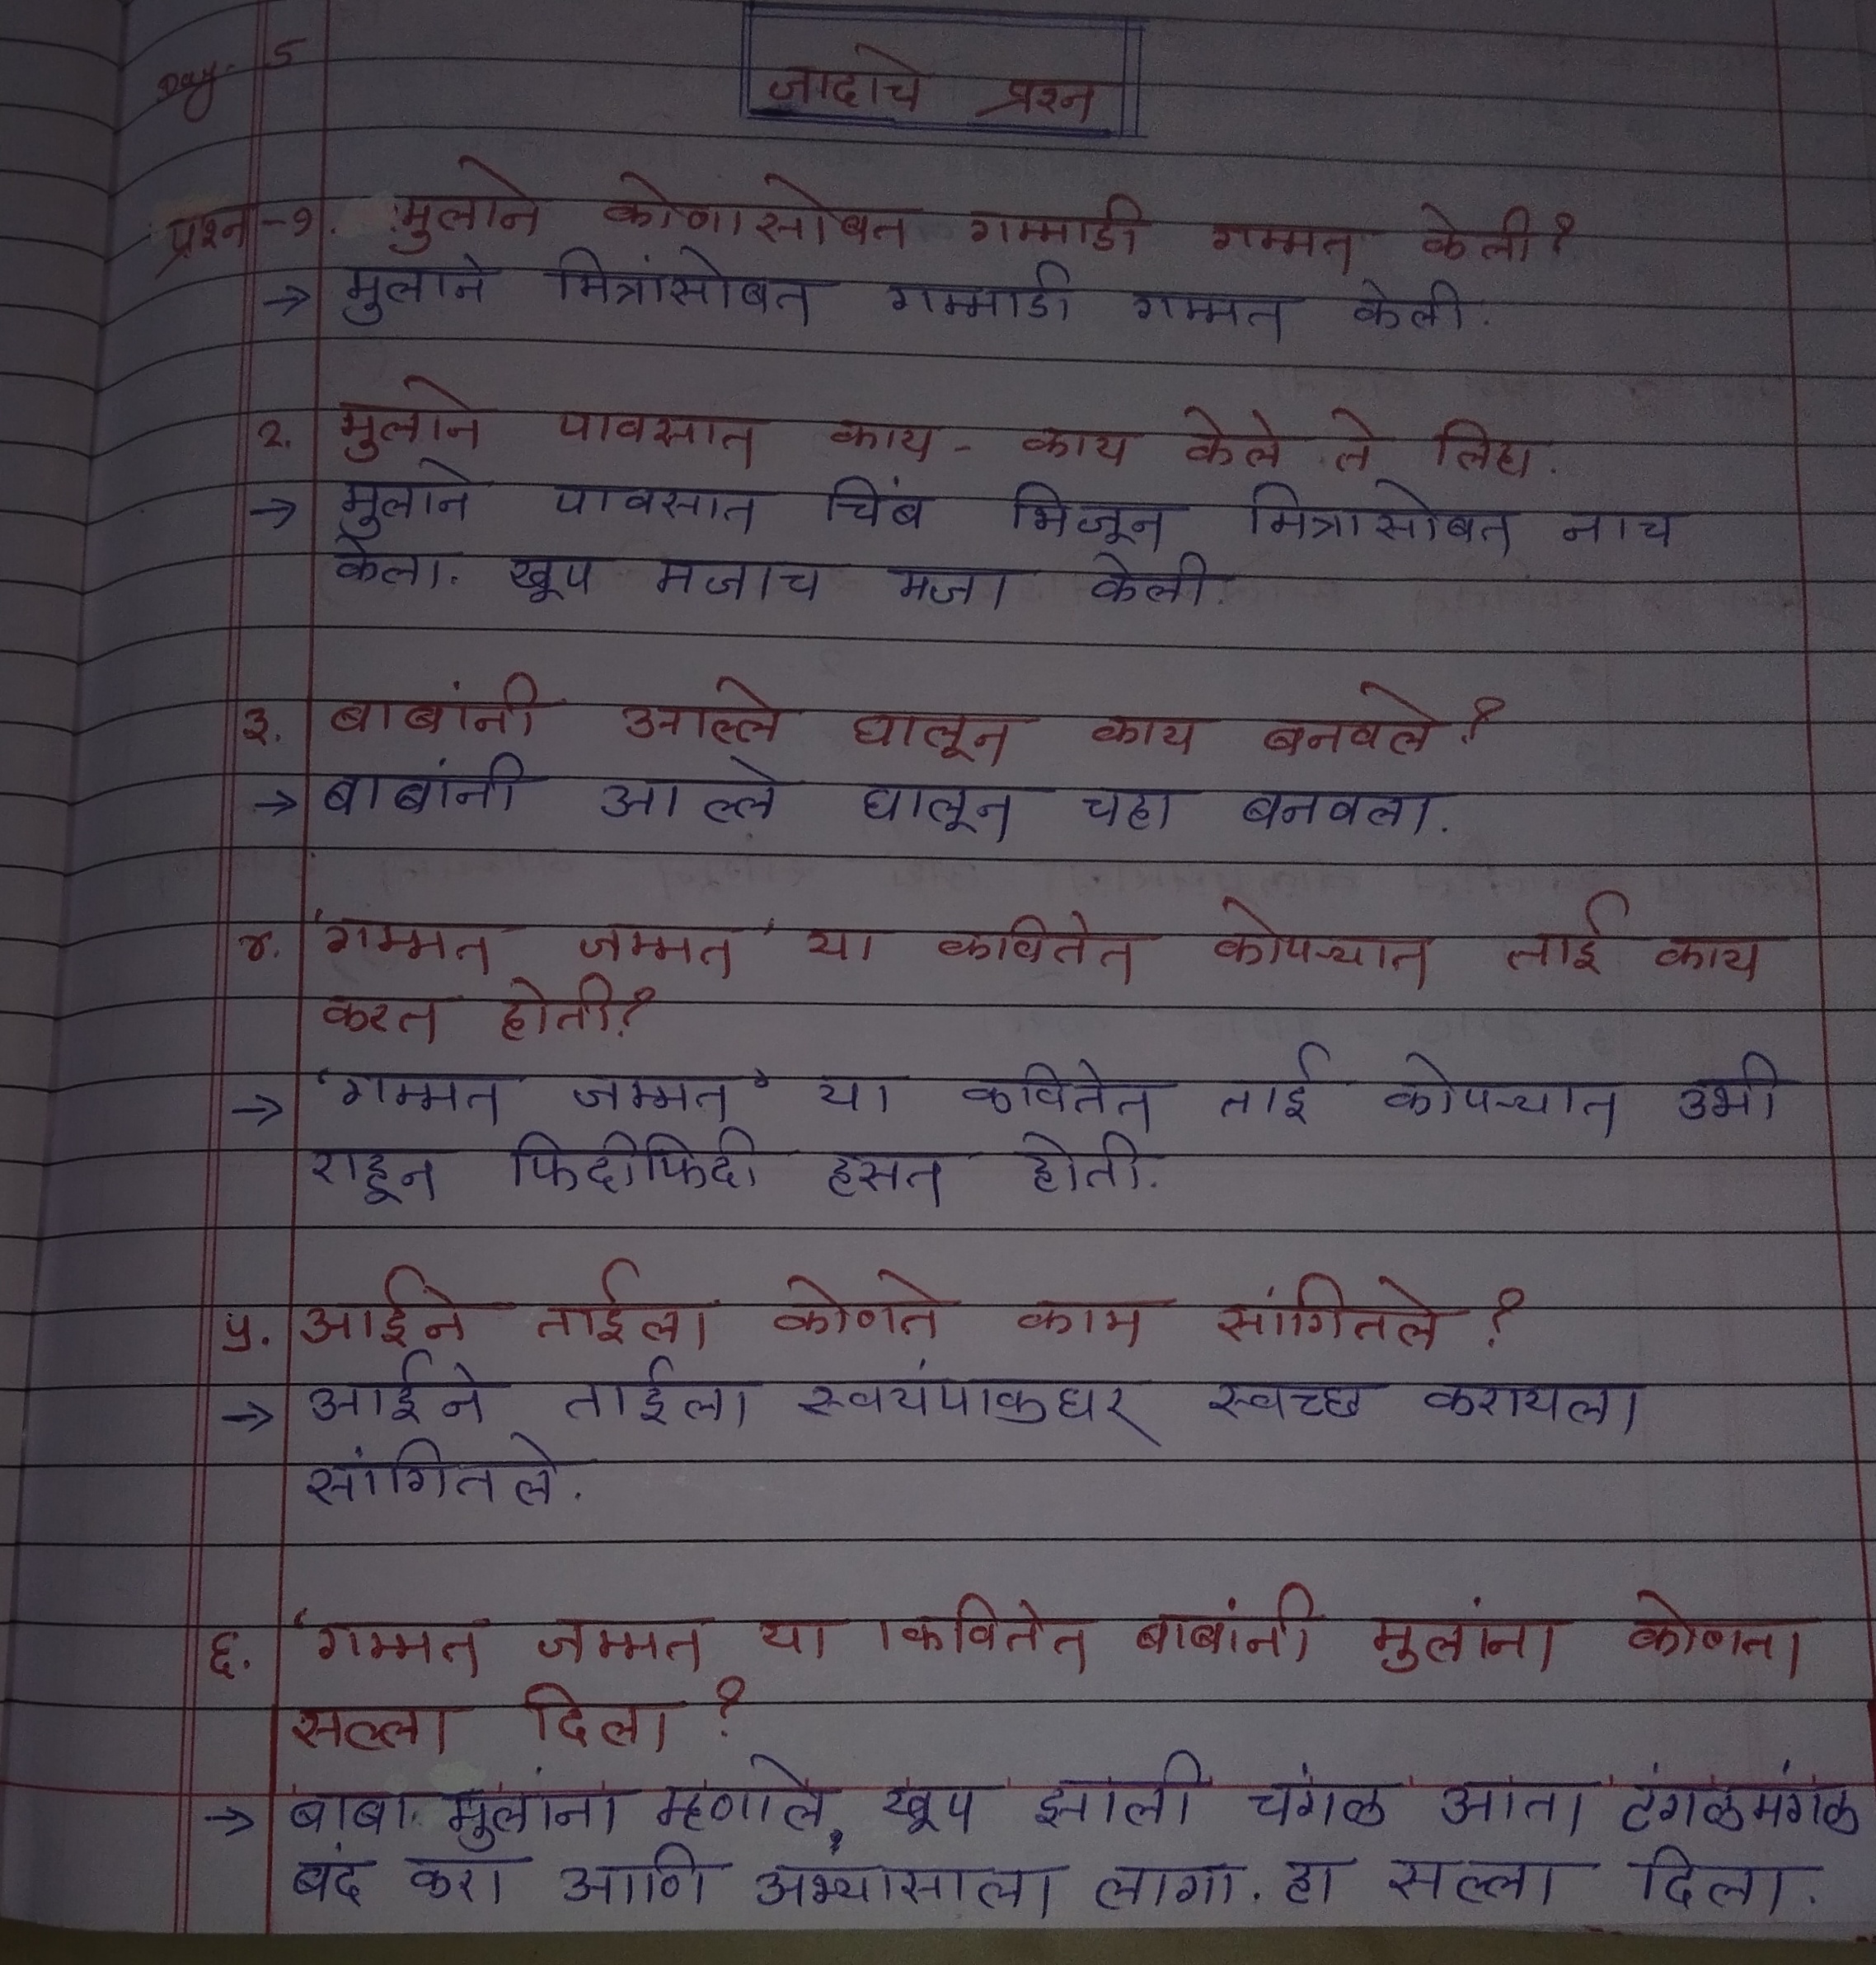 Day - 5
जादाचे प्रश्न
प्रश्न-१. मुलाने कोणासोबत गम्माडी गम्मत केली?
→ मुलाने मित्रांसोबत गम्माडी गम्मत केली.
२. मुलाने पावसात काय - काय केले ते लिहा.
→ मुलाने पावसात चिंब भिजून मित्रासोबत नाच
केला. खूप मजाच मजा केली.
३. बाबांनी आल्ले घालून काय बनवले?
→ बाबांनी आल्ले घालून चहा बनवला.
४. 'गम्मत जम्मत' या कवितेत कोपऱ्यात ताई काय
करत होती?
→ 'गम्मत जम्मत' या कवितेत ताई कोपऱ्यात उभी
राहून फिदीफिदी हसत होती.
५. आईने ताईला कोणते काम सांगितले?
→ आईने ताईला स्वयंपाकघर स्वच्छ करायला
सांगितले.
६. 'गम्मत जम्मत या कवितेत बाबांनी मुलांना कोणता
सल्ला दिला?
→ बाबा मुलांना म्हणाले, खूप झाली चंगळ आता टंगळमंगळ
बंद करा आणि अभ्यासाला लागा. हा सल्ला दिला.